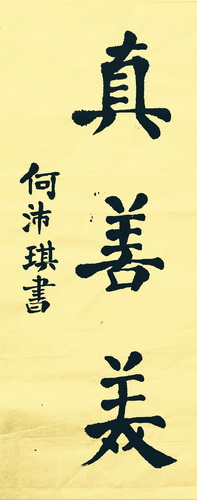 真善美
何沛琪書